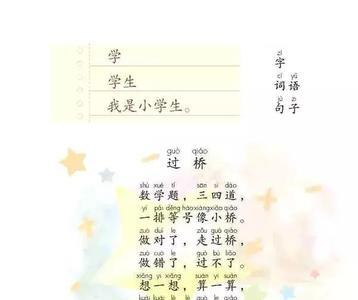 学
学生
我是小学生。
zì
字
cí yǔ
词语
jù zi
句子
guò qiáo
过桥
shù xué tí sān sì dào
数学题，三四道，
yì pái děng hào xiàng xiǎo qiáo
一排等号像小桥。
zuò duì le zǒu guò qiáo
做对了，走过桥，
zuò cuò le guò bù liǎo
做错了，过不了。
xiǎng yì xiǎng suàn yí suàn
想一想，算一算，